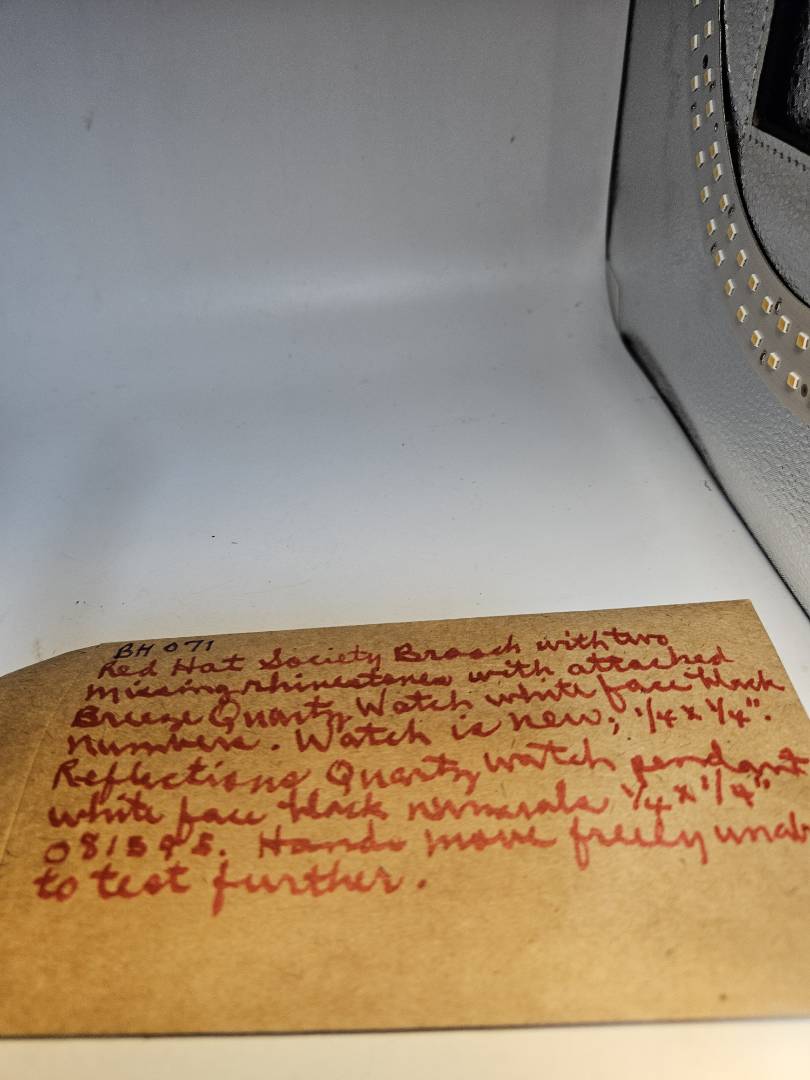 BH 071
Red Hat Society Broach with two
missing rhinestones with attached
Breeze Quartz Watch white face black
numbers. Watch is new; 1/4 x 1/4".
Reflections Quartz watch pendant
white face black numerals 1/4 x 1/4"
Hands move freely unab
to test further.